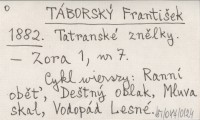 D
TÁBORSKÝ František
1882. Tatranské znělky.
— Zora 1, nr 7.
Cykl wierszy: Ranní
obět', Deštný oblak, Mluva
skal, Vodopád Lesné.